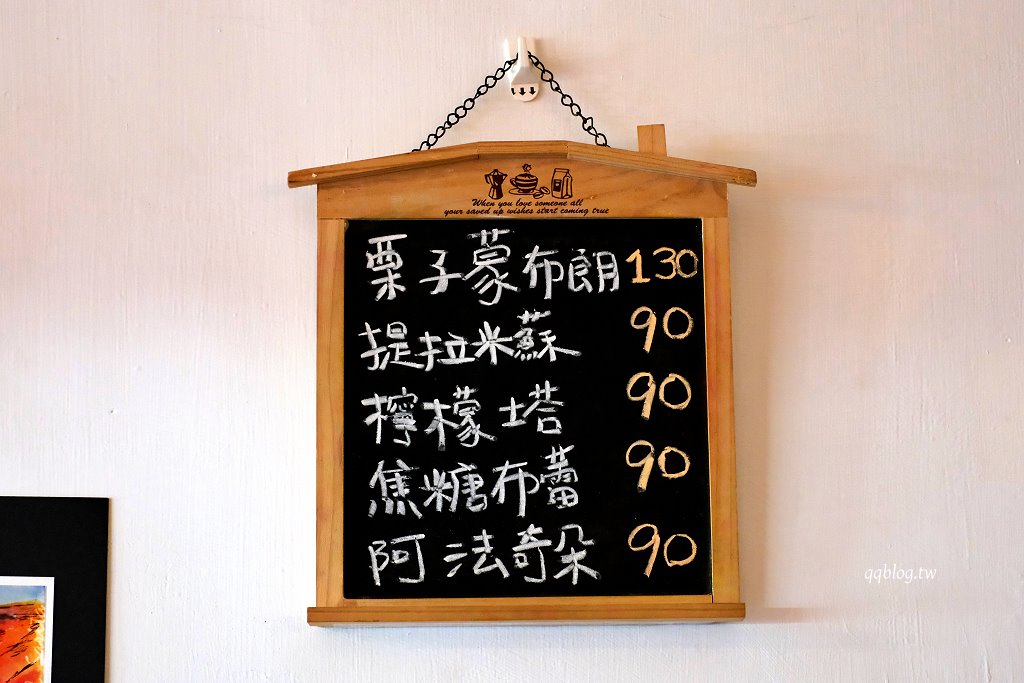 When you love someone all
your saved up wishes start coming true
栗子蒙布朗 130
提拉米蘇 90
檸檬塔 90
焦糖布蕾 90
阿法奇朵 90
qqblog.tw